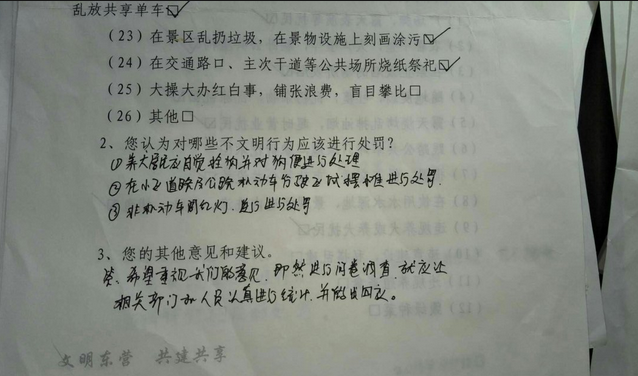 乱放共享单车☑
(23)在景区乱扔垃圾，在景物设施上刻画涂污☑
(24)在交通路口、主次干道等公共场所烧纸祭祀☑
(25)大操大办红白事，铺张浪费，盲目攀比□
(26)其他□
2、您认为对哪些不文明行为应该进行处罚？
①养犬居民应自觉拴狗并对狗便进行处理
②在小区道路及公路机动车行驶区域摆摊进行处罚.
③非机动车闯红灯.逆行进行处罚
3、您的其他意见和建议。
答、希望重视我们的意见，即然进行问卷调查 就应让
相关部门和人员认真进行统计.并做出回应。
文明东营 共建共享